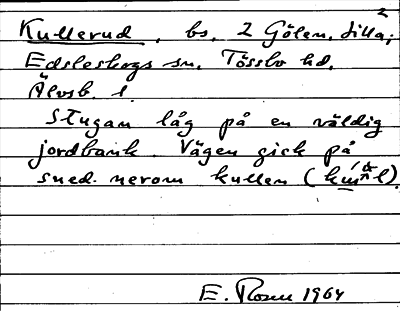 2
Kullerud, bs. 2 Gölen, Lilla;
Edsleskogs sn. Tössbo hd.
Älvsb. l.
Stugan låg på en väldig
jordbank. Vägen gick på
sned. nerom kullen
E. Rosen 1964